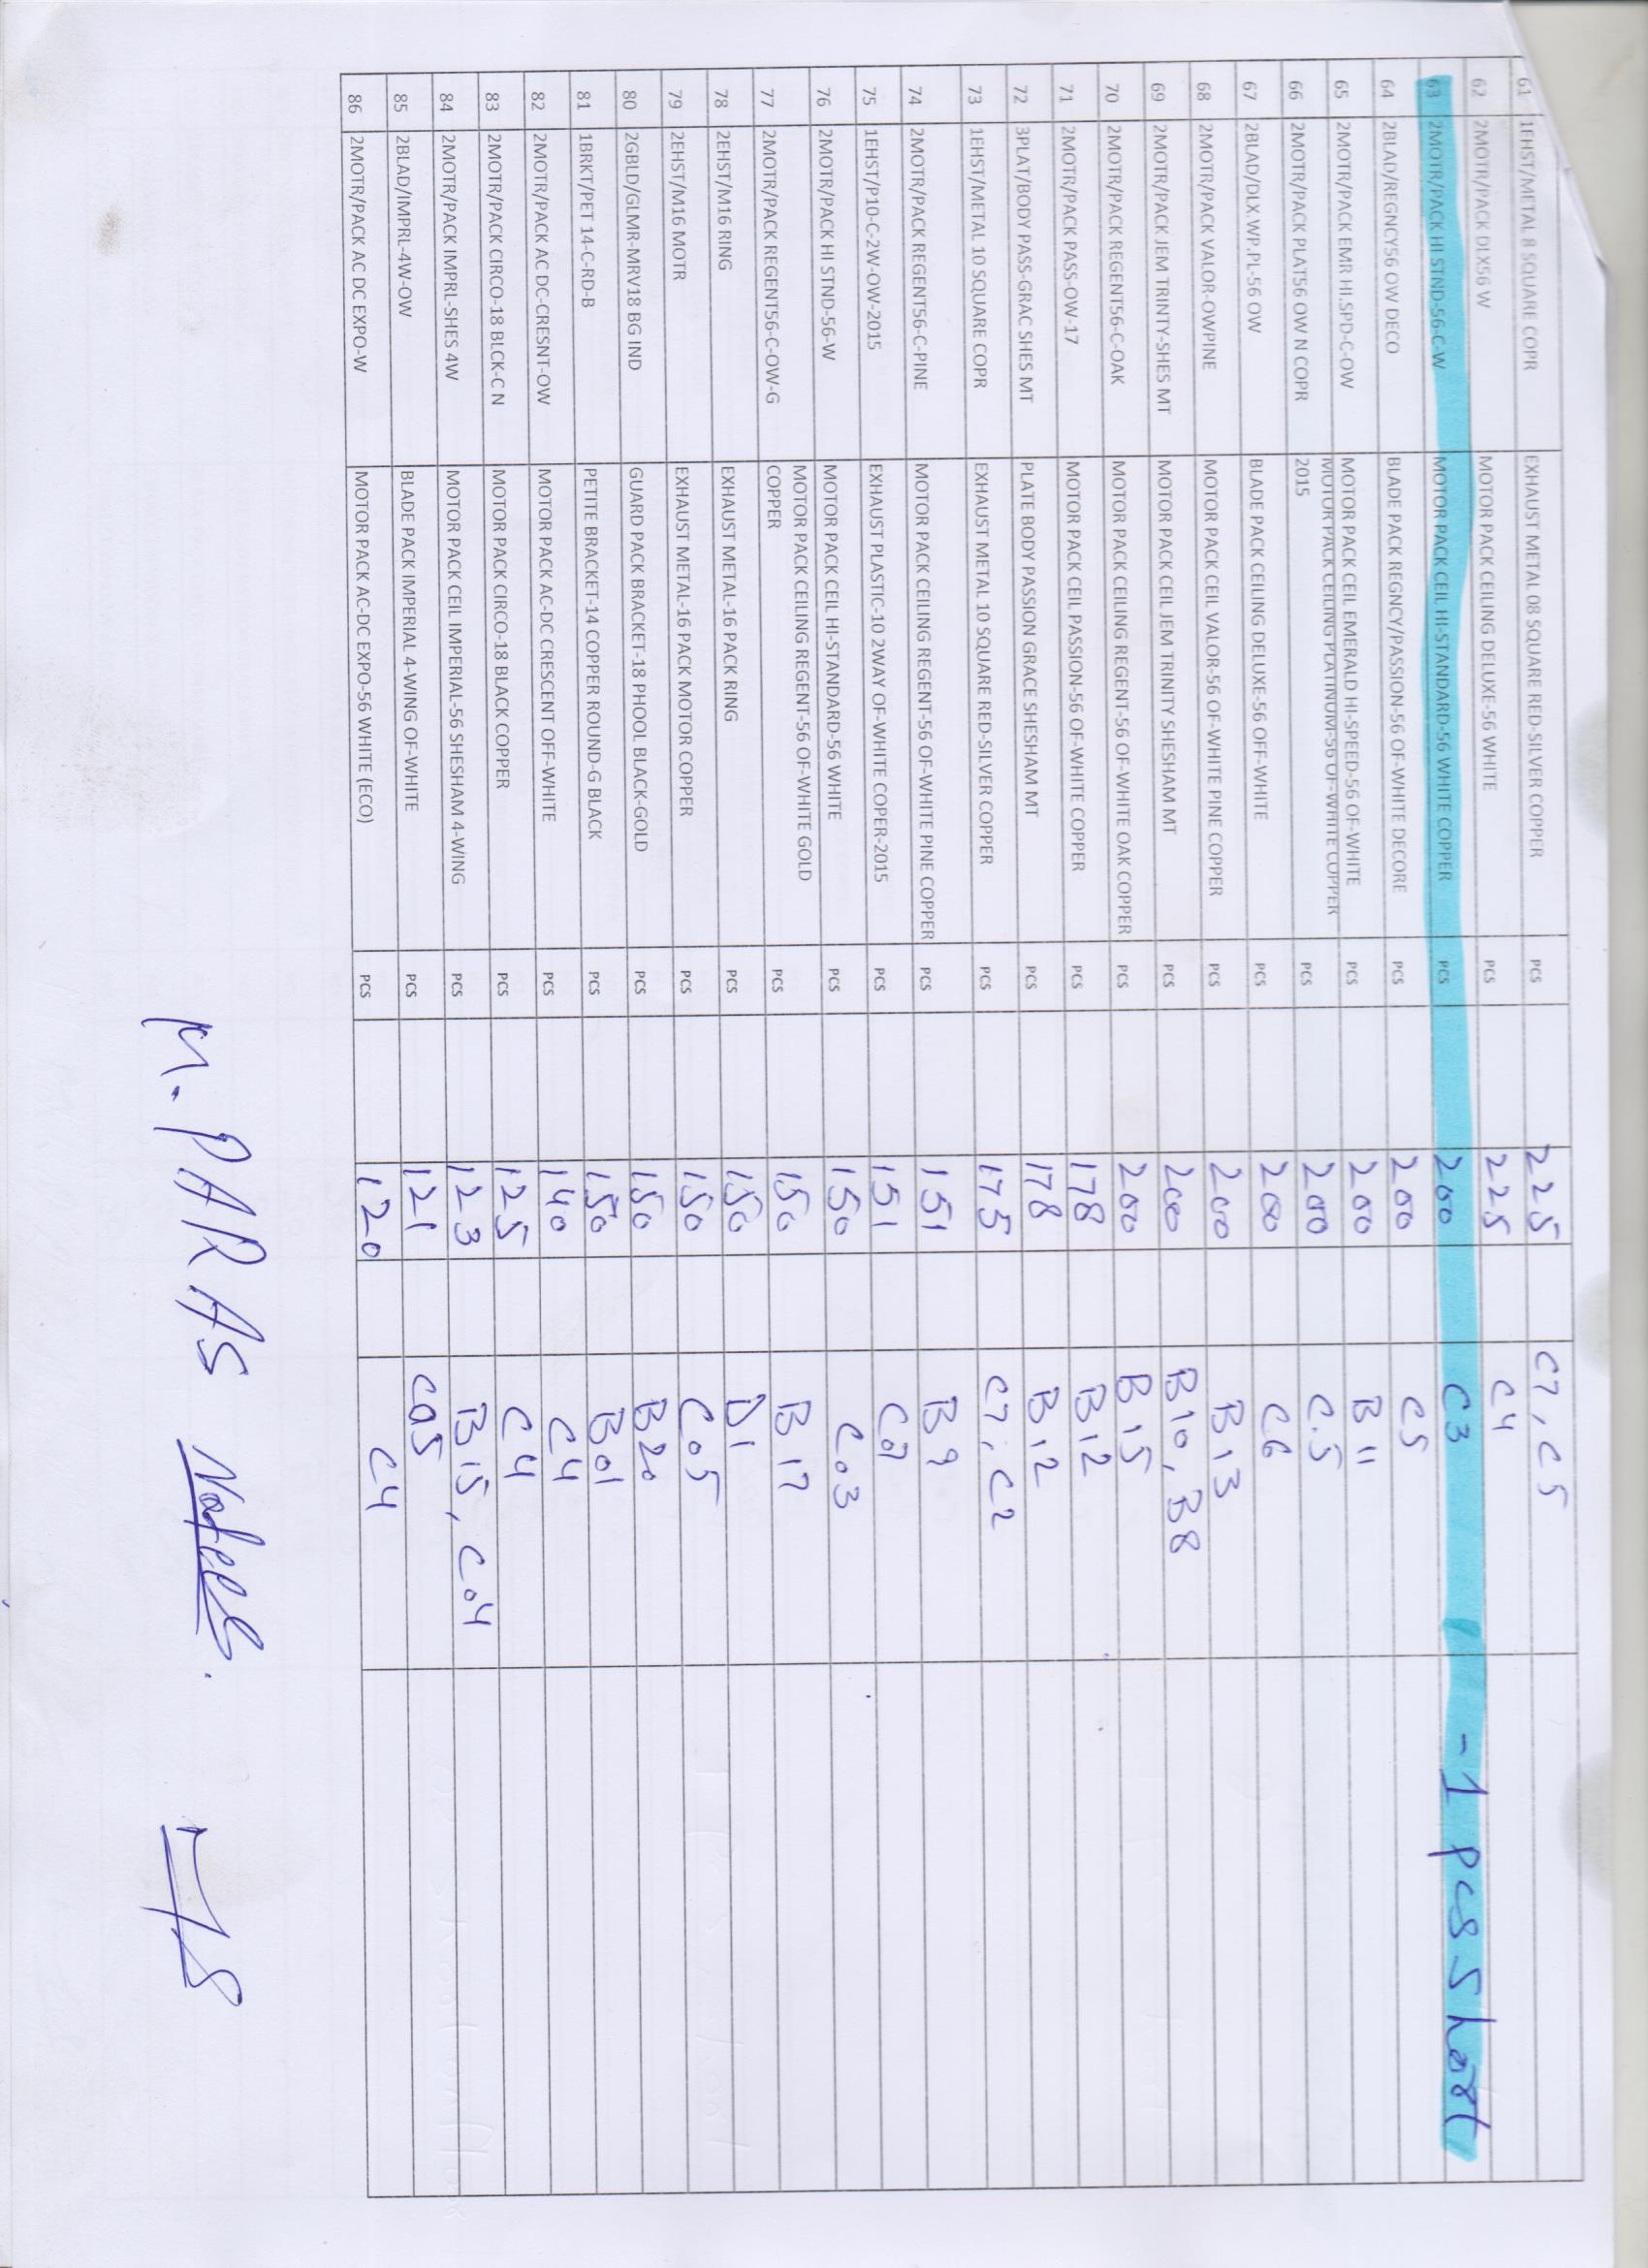 61 1EHST/METAL 8 SQUARE COPR EXHAUST METAL 08 SQUARE RED-SILVER COPPER PCS 225 C7, C5
62 2MOTR/PACK DLX56 W MOTOR PACK CEILING DELUXE-56 WHITE PCS 225 C4
63 2MOTR/PACK HI STND-56-C-W MOTOR PACK CEIL HI-STANDARD-56 WHITE COPPER PCS 200 C3 -1 pcs short
64 2BLAD/REGNCY56 OW DECO BLADE PACK REGNCY/PASSION-56 OF-WHITE DECORE PCS 200 C5
65 2MOTR/PACK EMR HI.SPD-C-OW MOTOR PACK CEIL EMERALD HI-SPEED-56 OF-WHITE PCS 200 B 11
MOTOR PACK CEILING PLATINUM-56 OF-WHITE COPPER
66 2MOTR/PACK PLAT56 OW N COPR 2015 PCS 200 C.5
67 2BLAD/DLX.WP.PL-56 OW BLADE PACK CEILING DELUXE-56 OFF-WHITE PCS 200 C6
68 2MOTR/PACK VALOR-OWPINE MOTOR PACK CEIL VALOR-56 OF-WHITE PINE COPPER PCS 200 B13
69 2MOTR/PACK JEM TRINTY-SHES MT MOTOR PACK CEIL JEM TRINITY SHESHAM MT PCS 200 B10, B8
70 2MOTR/PACK REGENT56-C-OAK MOTOR PACK CEILING REGENT-56 OF-WHITE OAK COPPER PCS 200 B15
71 2MOTR/PACK PASS-OW-17 MOTOR PACK CEIL PASSION-56 OF-WHITE COPPER PCS 178 B12
72 3PLAT/BODY PASS-GRAC SHES MT PLATE BODY PASSION GRACE SHESHAM MT PCS 178 B12
73 1EHST/METAL 10 SQUARE COPR EXHAUST METAL 10 SQUARE RED-SILVER COPPER PCS 175 C7, C2
74 2MOTR/PACK REGENT56-C-PINE MOTOR PACK CEILING REGENT-56 OF-WHITE PINE COPPER PCS 151 B9
75 1EHST/P10-C-2W-OW-2015 EXHAUST PLASTIC-10 2WAY OF-WHITE COPER-2015 PCS 151 C07
76 2MOTR/PACK HI STND-56-W MOTOR PACK CEIL HI-STANDARD-56 WHITE PCS 150 C03
MOTOR PACK CEILING REGENT-56 OF-WHITE GOLD
77 2MOTR/PACK REGENT56-C-OW-G COPPER PCS 150 B17
78 2EHST/M16 RING EXHAUST METAL-16 PACK RING PCS 150 D1
79 2EHST/M16 MOTR EXHAUST METAL-16 PACK MOTOR COPPER PCS 150 C05
80 2GBLD/GLMR-MRV18 BG IND GUARD PACK BRACKET-18 PHOOL BLACK-GOLD PCS 150 B20
81 1BRKT/PET 14-C-RD-B PETITE BRACKET-14 COPPER ROUND-G BLACK PCS 150 B01
82 2MOTR/PACK AC DC-CRESNT-OW MOTOR PACK AC-DC CRESCENT OFF-WHITE PCS 140 C4
83 2MOTR/PACK CIRCO-18 BLCK-C N MOTOR PACK CIRCO-18 BLACK COPPER PCS 125 C4
84 2MOTR/PACK IMPRL-SHES 4W MOTOR PACK CEIL IMPERIAL-56 SHESHAM 4-WING PCS 123 B15, C04
85 2BLAD/IMPRL-4W-OW BLADE PACK IMPERIAL 4-WING OF-WHITE PCS 121 C05
86 2MOTR/PACK AC DC EXPO-W MOTOR PACK AC-DC EXPO-56 WHITE (ECO) PCS 120 C4
M. PARAS Nafees.